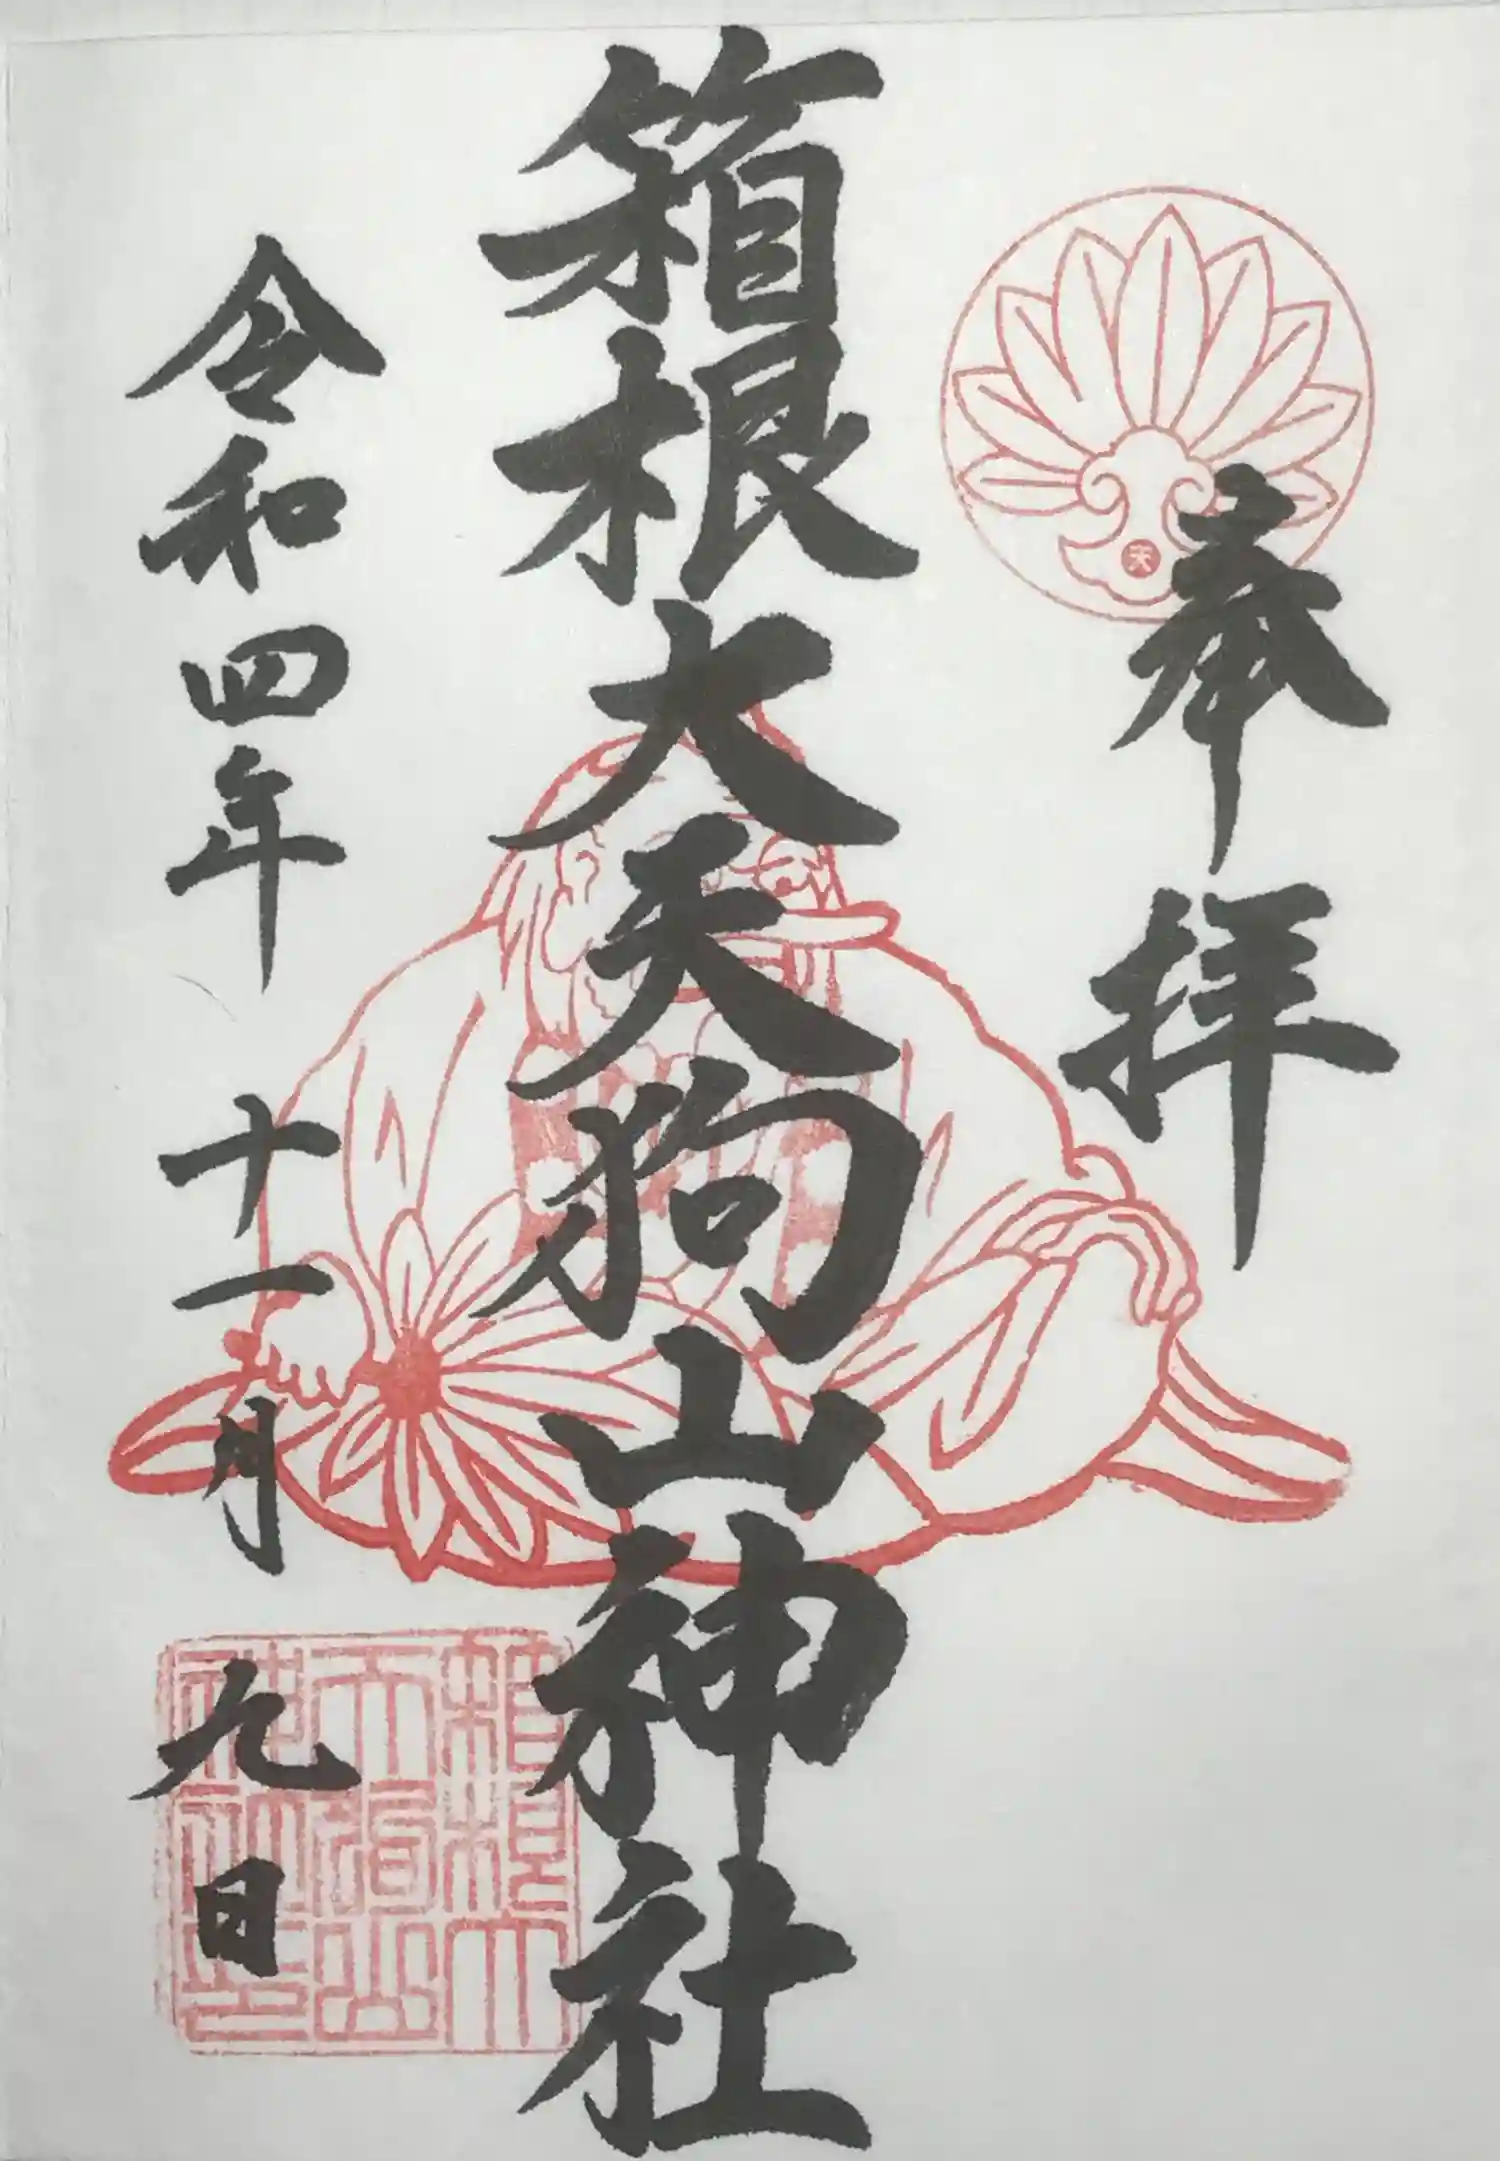 奉拝
天
箱根大天狗山神社
令和四年十一月九日
箱根大
天狗山
神社